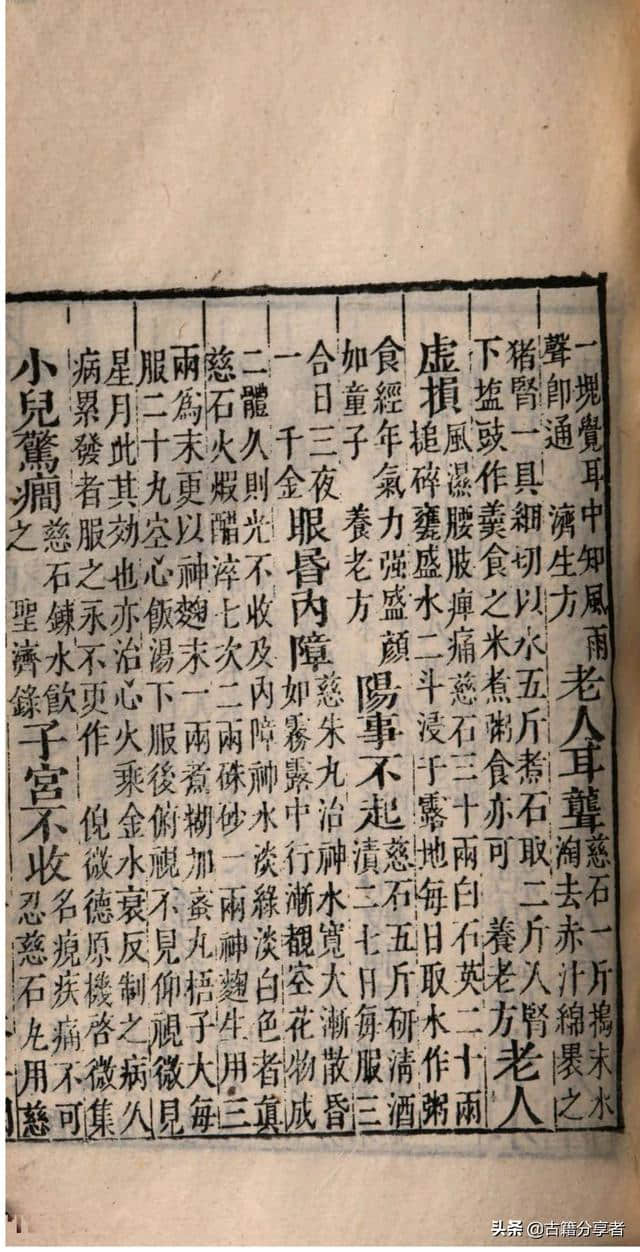 一塊覺耳中知風雨
聲即通 濟生方
老人耳聾
慈石一斤搗末水
淘去赤汁綿裹之
猪腎一具細切以水五斤煮石取二斤入腎
下塩豉作羹食之米煮粥食亦可 養老方
老人
虛損
風濕腰肢痺痛慈石三十兩白石英二十兩
搥碎甕盛水二斗浸于露地每日取水作粥
食經年氣力强盛顔
如童子 養老方
陽事不起
慈石五斤研清酒
漬二七日每服三
合日三夜
一 千金
眼昏內障
慈朱丸治神水寬大漸散昏
如霧露中行漸覩空花物成
二體久則光不收及內障神水淡綠淡白色者眞
慈石火煆醋淬七次二兩硃砂一兩神麴生用三
兩爲末更以神麴末一兩煮糊加蜜丸梧子大每
服二十丸空心飯湯下服後俯視不見仰視微見
星月此其効也亦治心火乘金水衰反制之病久
病累發者服之永不更作 倪微德原機啓微集
小兒驚癎
慈石鍊水飲
之 聖濟錄
子宮不收
名疾痛不可
忍慈石丸用慈
头条 @古籍分享者